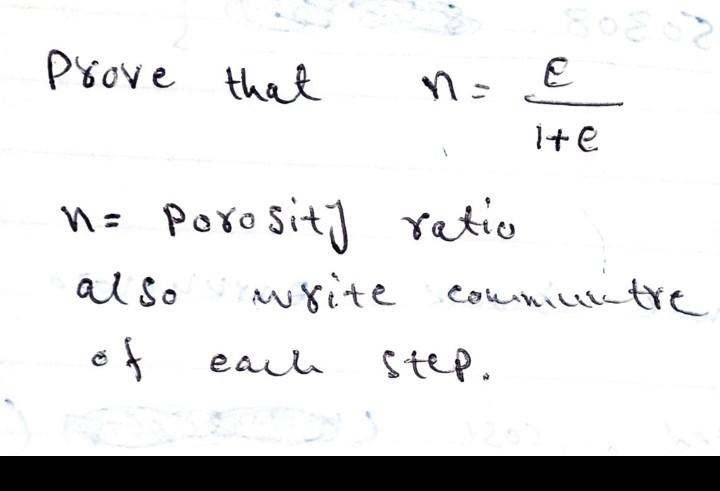 Prove that n = e / 1+e
n = Porosity ratio
also write communtre
of each step.